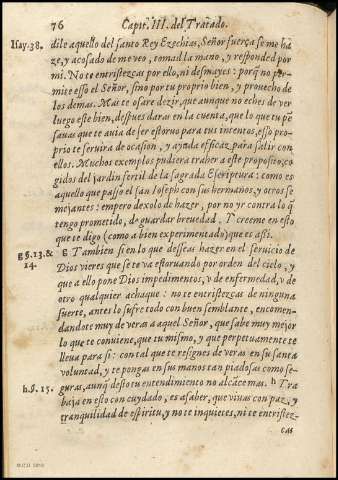 76 Capit. III. del Tratado.
Isay. 38. dile aquello del santo Rey Ezechias, Señor fuerça se me ha
ze, y acosado de me veo, tomad la mano, y responded por
mi. No te entristezcas por ello, ni desmayes: porq̃ no per-
mite esso el Señor, sino por tu proprio bien, y prouecho de
los demas. Mas te osare dezir, que aunque no eches de ver
luego este bien, despues daras en la cuenta, que lo que tu pẽ
sauas que te auia de ser estoruo para tus intentos, esso pro-
prio te seruira de ocasion, y ayuda efficaz para salir con
ellos. Muchos exemplos pudiera traher a este proposito, co
gidos del jardin fertil de la sagrada Escriptura: como es
aquello que passo el san Ioseph con sus hermanos, y otros se
mejantes: empero dexolo de hazer, por no yr contra lo q̃
tengo prometido, de guardar breuedad. Y creeme en esto
que te digo (como a bien experimentado) que es assi.
g §. 13. & g Tambien si en lo que desseas hazer en el seruicio de
14. Dios vieres que se te va estoruando por orden del cielo, y
que a ello pone Dios impedimentos, v de enfermedad, v de
otro qualquier achaque: no te entristezcas de ninguna
suerte, antes lo sufre todo con buen semblante, encomen-
dandote muy de veras a aquel Señor, que sabe muy mejor
lo que te conuiene, que tu mismo, y que perpetuamente te
lleua para si: con tal que te resignes de veras en su santa
voluntad, y te pongas en sus manos tan piadosas como se-
h. §. 15. guras, aunq̃ desto tu entendimiento no alcãce mas. h Tra
baja en esto con cuydado, es a saber, que viuas con paz, y
tranquilidad de espiritu, y no te inquietes, ni te entristez-
cas